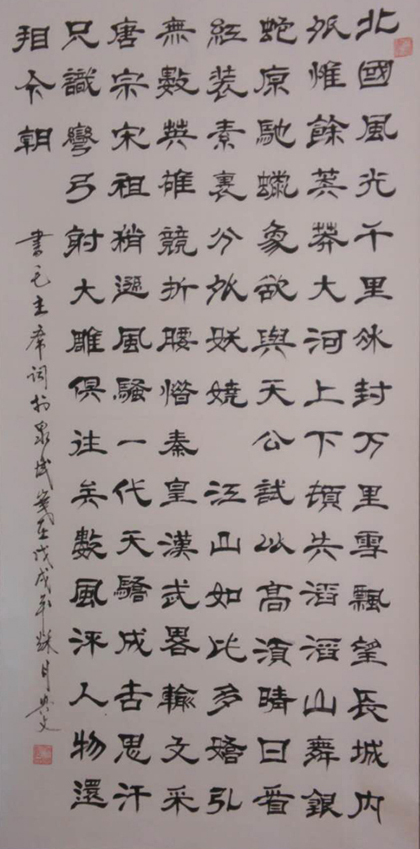 北國風光千里冰封万里雪飄望長城内
外惟餘莽莽大河上下頓失滔滔山舞銀
蛇原馳蠟象欲與天公試比高須晴日看
紅装素裹分外妖嬈 江山如此多嬌引
無數英雄競折腰惜秦皇漢武畧輸文采
唐宗宋祖稍遜風騷一代天驕成吉思汗
只識彎弓射大雕俱往矣數風流人物還
看今朝
書毛主席詞於泉城戊戌年秋月